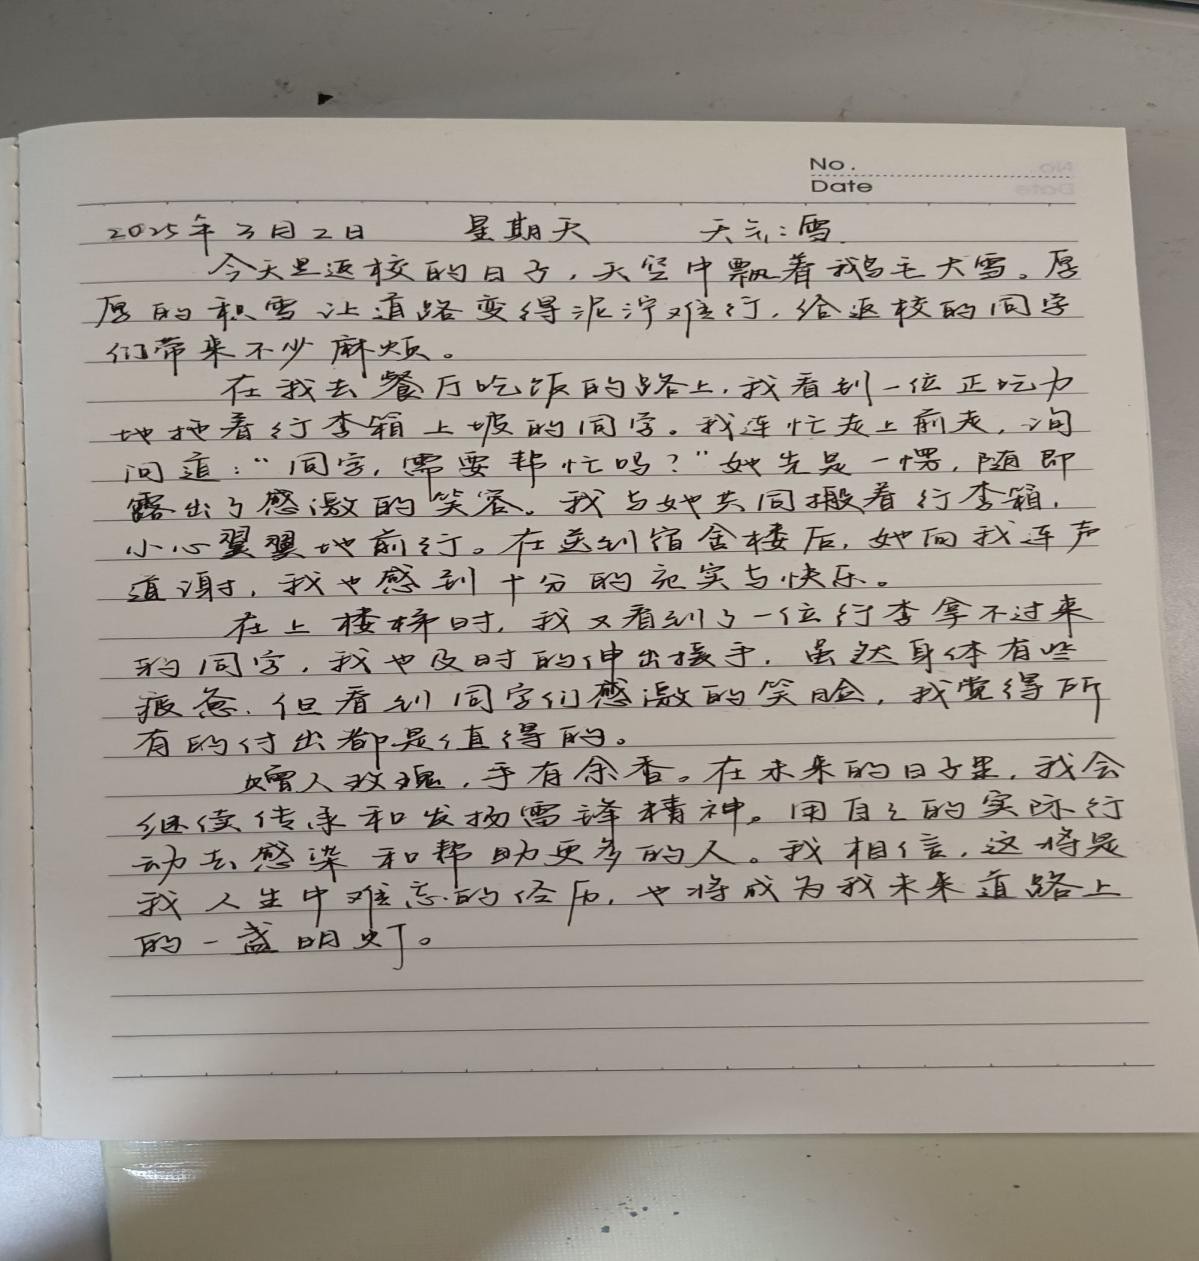 No.
Date
2025年3月2日 星期天 天气:雪.
今天是返校的日子,天空中飘着鹅毛大雪。厚
厚的积雪让道路变得泥泞难行,给返校的同学
们带来不少麻烦。
在我去餐厅吃饭的路上,我看到一位正吃力
地拖着行李箱上坡的同学。我连忙走上前去,询
问道:“同学,需要帮忙吗?”她先是一愣,随即
露出了感激的笑容。我与她共同搬着行李箱,
小心翼翼地前行。在送到宿舍楼后,她向我连声
道谢,我也感到十分的充实与快乐。
在上楼梯时,我又看到了一位行李拿不过来
的同学,我也及时的伸出援手,虽然身体有些
疲惫,但看到同学们感激的笑脸,我觉得所
有的付出都是值得的。
赠人玫瑰,手有余香。在未来的日子里,我会
继续传承和发扬雷锋精神。用自己的实际行
动去感染和帮助更多的人。我相信,这将是
我人生中难忘的经历,也将成为我未来道路上
的一盏明灯。